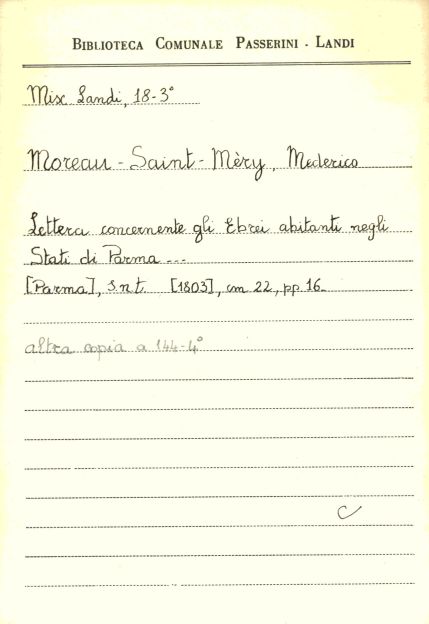 BIBLIOTECA COMUNALE PASSERINI - LANDI
Mix Landi, 18-3°
Moreau-Saint-Mèry, Mederico
Lettera concernente gli Ebrei abitanti negli
Stati di Parma ---
[Parma], s.n.t. [1803], cm 22, pp 16.
altra copia a 144-4°
C